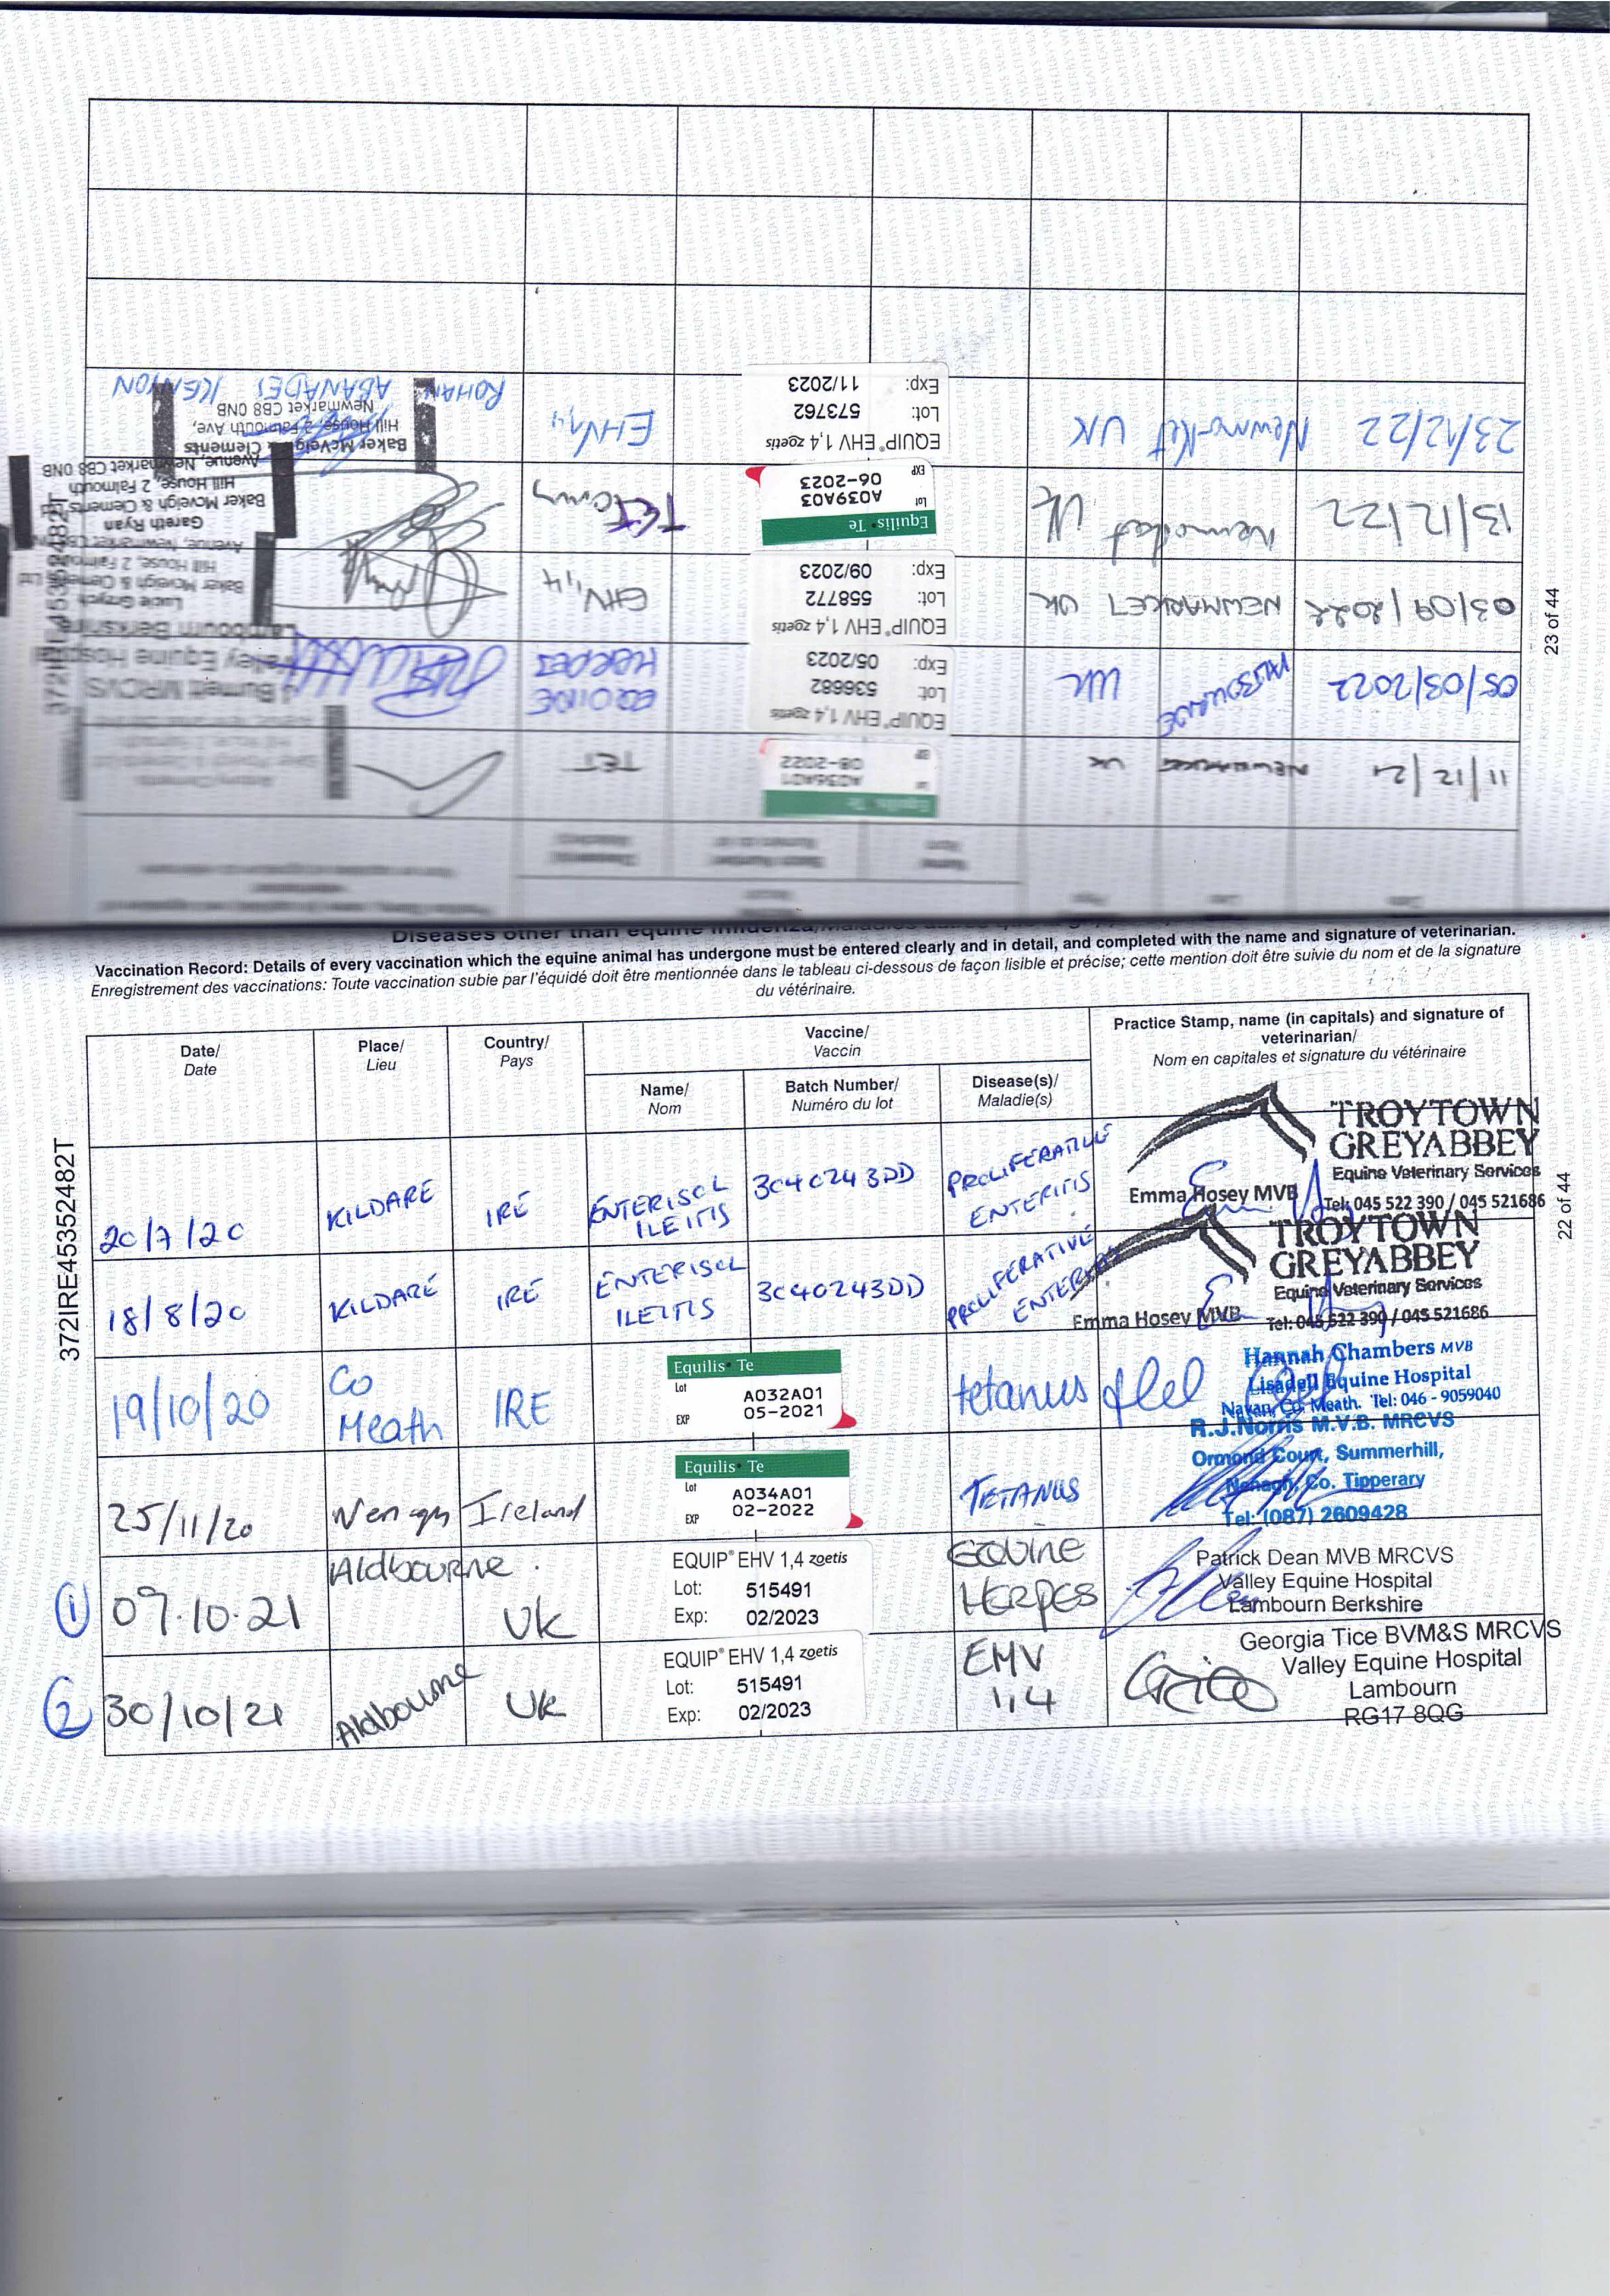 Diseases other than equine influenza/
Vaccination Record: Details of every vaccination which the equine animal has undergone must be entered clearly and in detail, and completed with the name and signature of veterinarian.
Enregistrement des vaccinations: Toute vaccination subie par l'équidé doit être mentionnée dans le tableau ci-dessous de façon lisible et précise; cette mention doit être suivie du nom et de la signature
du vétérinaire.
Date/
Date
Place/
Lieu
Country/
Pays
Vaccine/
Vaccin
Name/
Nom
Batch Number/
Numéro du lot
Disease(s)/
Maladie(s)
Practice Stamp, name (in capitals) and signature of
veterinarian/
Nom en capitales et signature du vétérinaire
20/7/20
KILDARE
IRE
ENTERISOL
ILEITIS
3040243DD
PROLIFERATIVE
ENTERITIS
TROYTOWN
GREYABBEY
Equine Veterinary Services
Emma Hosey MVB
Tel: 045 522 390 / 045 521686
18/8/20
KILDARE
IRE
ENTERISOL
ILEITIS
3040243DD
PROLIFERATIVE
TROYTOWN
GREYABBEY
Equine Veterinary Services
Emma Hosey MVB
Tel: 045 522 390 / 045 521686
19/10/20
Co
Meath
IRE
Equilis Te
Lot A032A01
EXP 05-2021
tetanus
Hannah Chambers MVB
Lisadell Equine Hospital
Navan, Co. Meath. Tel: 046 - 9059040
25/11/20
Nenagh
Ireland
Equilis Te
Lot A034A01
EXP 02-2022
TETANUS
R.J.Norris M.V.B. MRCVS
Ormond Court, Summerhill,
Nenagh, Co. Tipperary
Tel: (087) 2609428
1
09.10.21
Aldbourne
UK
EQUIP® EHV 1,4 zoetis
Lot: 515491
Exp: 02/2023
EQUINE
HERPES
Patrick Dean MVB MRCVS
Valley Equine Hospital
Lambourn Berkshire
2
30/10/21
Aldbourne
UK
EQUIP® EHV 1,4 zoetis
Lot: 515491
Exp: 02/2023
EHV
1,4
Georgia Tice BVM&S MRCVS
Valley Equine Hospital
Lambourn
RG17 8QG
372IRE45352482T
22 of 44
11/12/21
NEWMARKET
UK
Equilis Te
A036A01
08-2022
TET
05/03/2022
UK
EQUIP® EHV 1,4 zoetis
Lot: 536682
Exp: 05/2023
EQUINE
HERPES
Burnett MRCVS
Valley Equine Hospital
Lambourn Berkshire
03/09/2022
NEWMARKET
UK
EQUIP® EHV 1,4 zoetis
Lot: 558772
Exp: 09/2023
EHV 1,4
Baker Mcveigh & Clements Ltd
Hill House, 2 Falmouth
Avenue, Newmarket CB8 0NB
13/12/22
Newmarket
UK
Equilis Te
Lot A039A03
EXP 06-2023
Gareth Ryan
Baker Mcveigh & Clements Ltd
Hill House, 2 Falmouth
Avenue, Newmarket CB8 0NB
23/12/22
Newmarket
UK
EQUIP® EHV 1,4 zoetis
Lot: 573762
Exp: 11/2023
EHV 1,4
Baker McVeigh & Clements
Hill House, 2 Falmouth Ave,
Newmarket CB8 0NB
ROHAN ABANADES KENYON
23 of 44